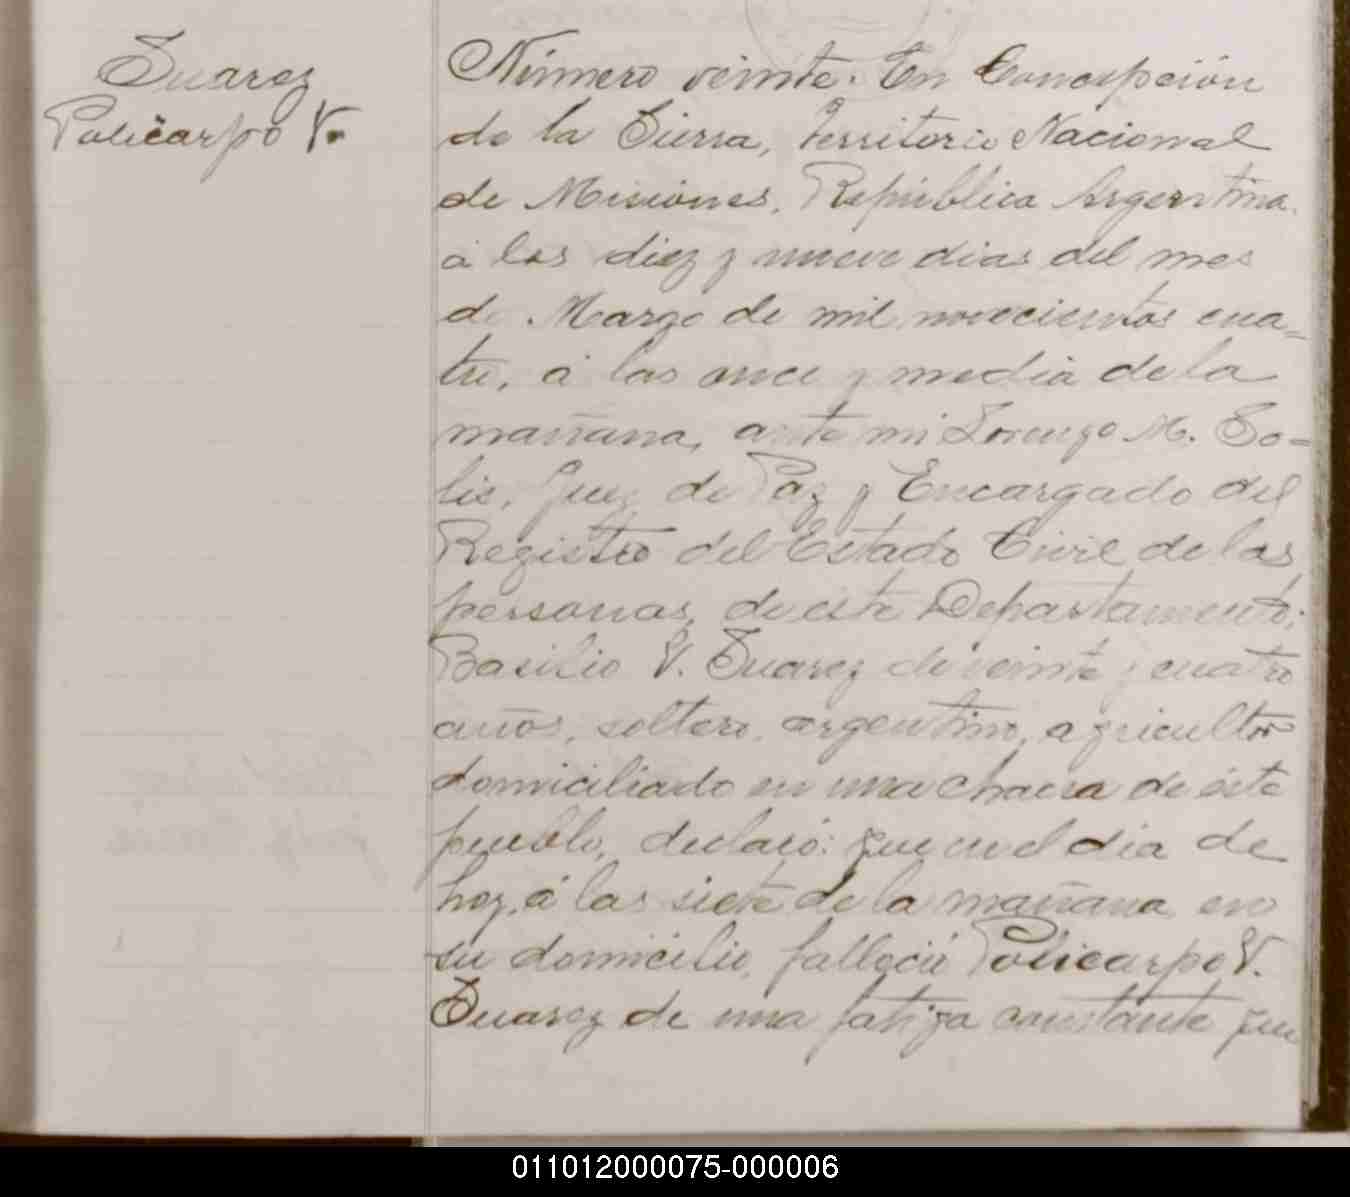 Suarez
Policarpo V.
Número veinte. En Concepción
de la Sierra, Territorio Nacional
de Misiones, República Argentina,
á los diez y nueve dias del mes
de Marzo de mil novecientos cua-
tro, á las once y media de la
mañana, ante mi Lorenzo M. So-
lis, Juez de Paz y Encargado del
Registro del Estado Civil de las
personas, de este Departamento;
Basilio V. Suarez de veinte y cuatro
años, soltero, argentino, agricultor
domiciliado en una chacra de éste
pueblo, declaró: que en el día de
hoy, á las siete de la mañana, en
su domicilio, falleció Policarpo V.
Suarez de una fatiga constante que
011012000075-000006